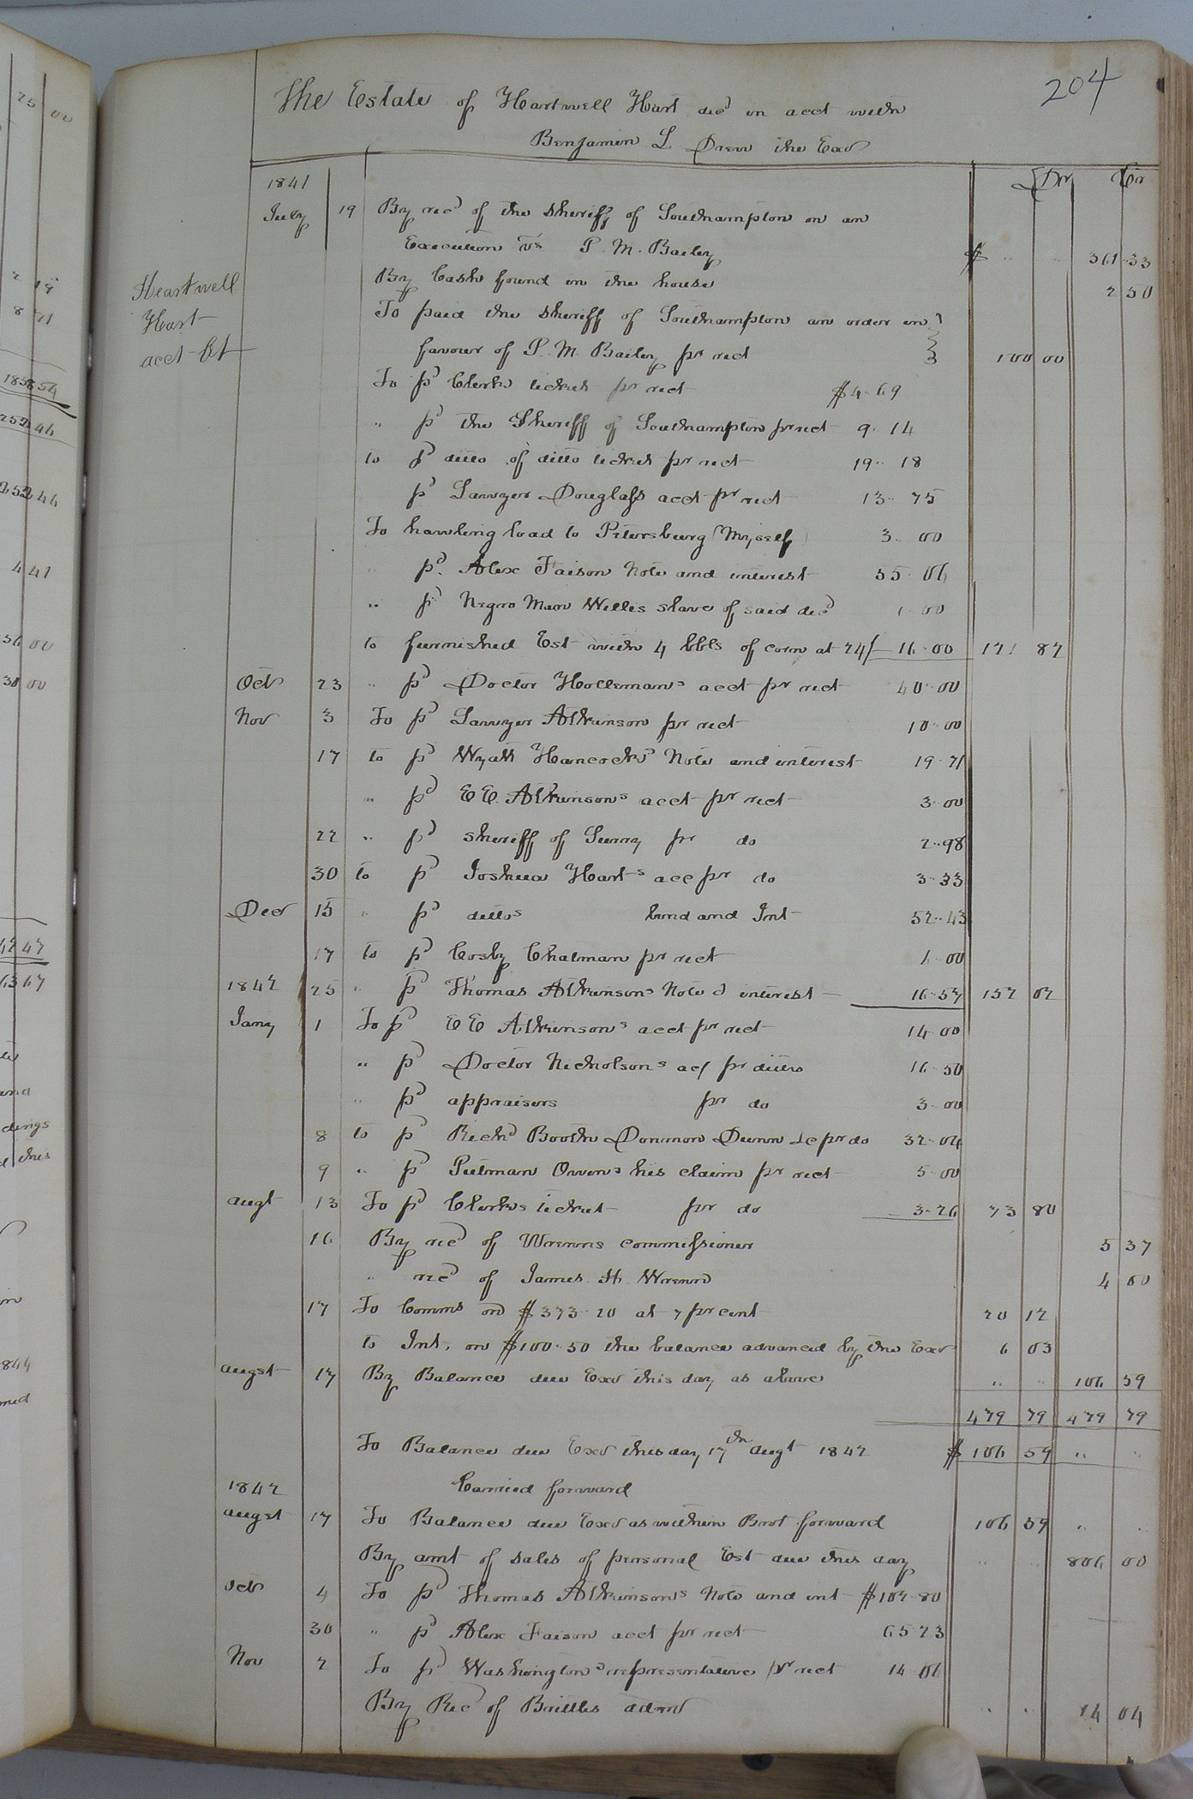 204
The Estate of Hartwell Hart decd in acct with
Benjamin L Drew the Exor
Dr Cr
1841
July 19 By recd of the Sheriff of Southampton on an
Execution vs P. M. Bailey $ " " 361 33
Heartwell
Hart
acct-Ct
By Cash found in the house 2 50
To paid the Sheriff of Southampton an order in
favour of P. M. Bailey pr rect 100 00
To pd Clerks ticket pr rect $4.69
" pd the Sheriff of Southampton pr rect 9.14
to pd ditto of ditto ticket pr rect 19.18
pd Lawyer Douglass acct pr rect 13.75
To hawling load to Petersburg (Myself) 3.00
" pd. Alex Faison Note and interest 55.06
" pd Negro Man Willes slave of said decd 1.00
to furnished Est with 4 bbls of corn at 24/ 16.00 121 82
Oct 23 " pd Doctor Hollemans acct pr rect 40.00
Nov 3 To pd Lawyer Atkinson pr rect 10.00
17 to pd Wyatt Hancocks Note and interest 19.71
" pd E E Atkinsons acct pr rect 3.00
22 " pd Sheriff of Surry pr do 2.98
30 to pd Joshua Harts acc pr do 3.33
Dec 15 " pd dittos bond and Int 52.43
17 to pd Cosby Chatman pr rect 1.00
1842 25 " pd Thomas Atkinsons Note & interest 16.57 152 02
Jany 1 To pd E E Atkinsons acct pr rect 14.00
" pd Doctor Nicholsons ac/ pr ditto 16.50
" pd appraisers pr do 3.00
8 to pd Richd Booth Donmon Dunn &c pr do 32.04
9 " pd Pitman Owens his claim pr rect 5.00
augt 13 To pd Clerks ticket pr do 3.26 73 80
16 By recd of Wrenns commissioner 5 37
" recd of James H Wrenn 4 00
17 To Comms on $373.20 at 7 pr cent 20 12
to Int. on $100.50 the balance advanced by the Exor 6 03
augst 17 By Balance due Exor this day as above " " 106 59
479 79 479 79
To Balance due Exor this day 17th Augt 1842 $ 106 59 " "
1842 Carried forward
augst 17 To Balance due Exor as within Brot forward 106 59 " "
By amt of sales of personal Est due this day " " 806 00
Oct 4 To pd Thomas Atkinsons Note and int $102.80
30 " pd Alex Faison acct pr rect 65 23
Nov 2 To pd Washingtons representative pr rect 14.06
By Recd of Brittles admr " " 14 04